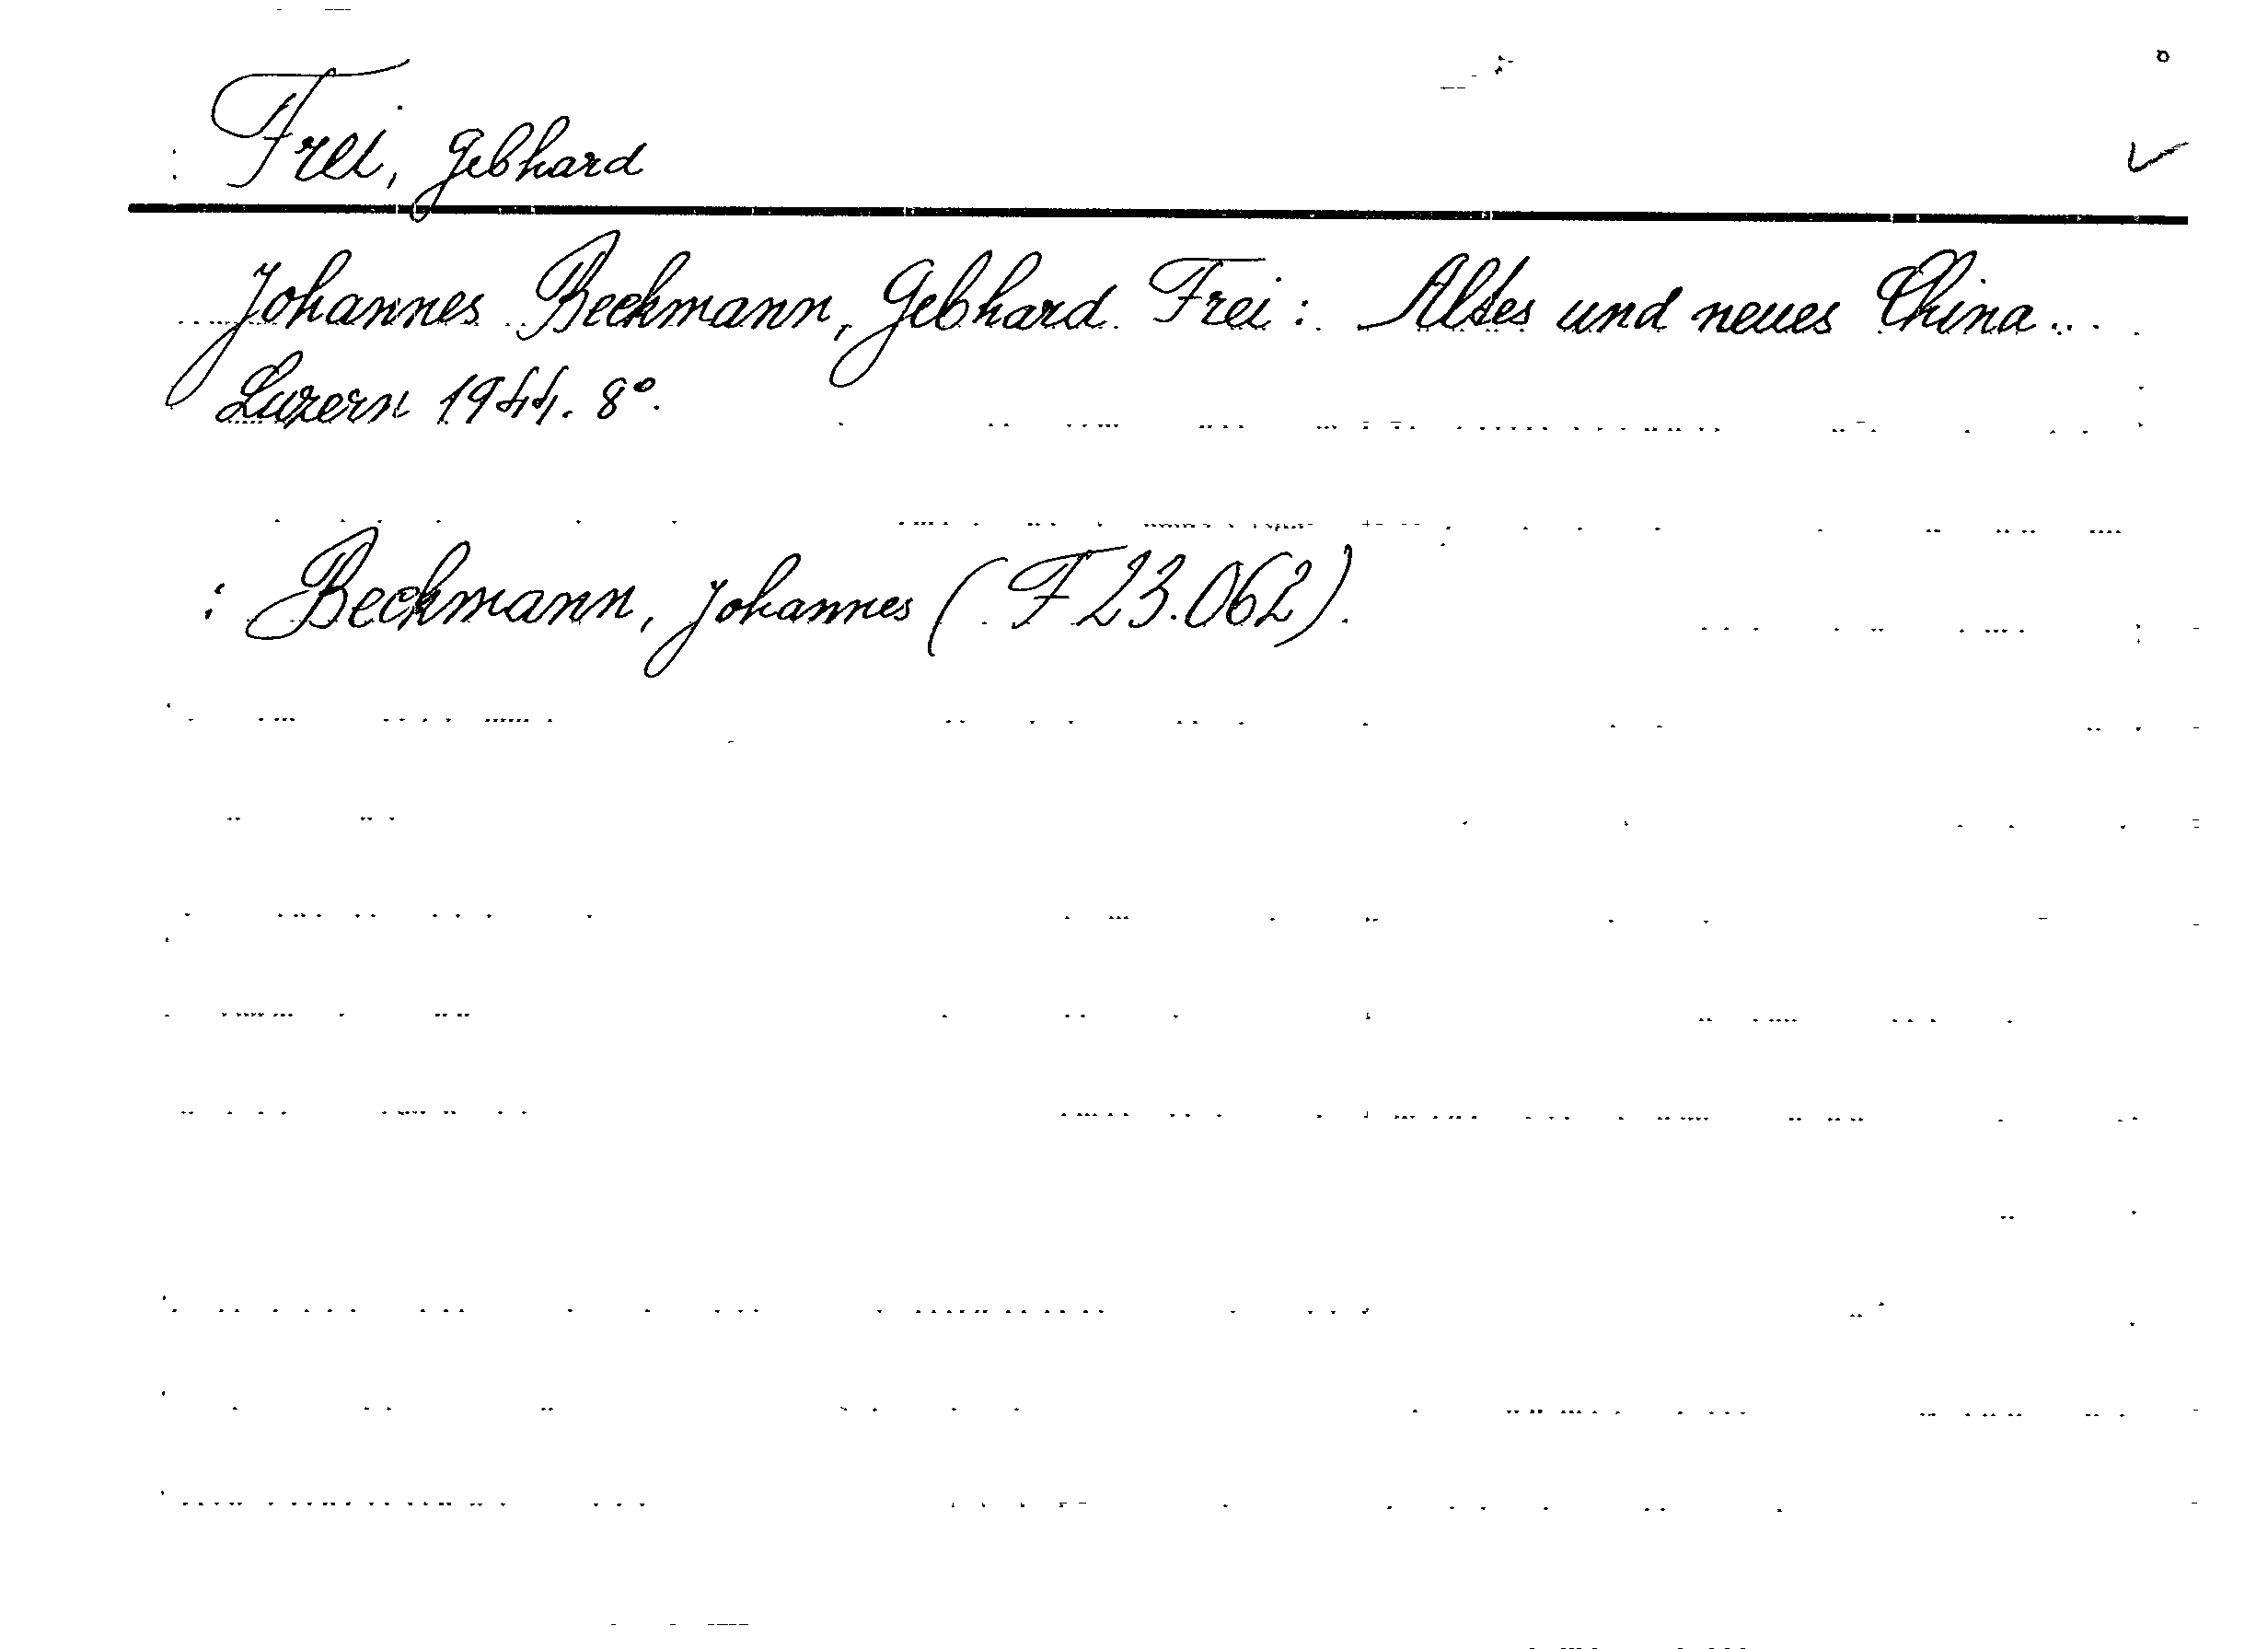 : Frei, Gebhard
Johannes Beckmann, Gebhard Frei: Altes und neues China...
Luzern 1944. 8°.
: Beckmann, Johannes (F 23.062).